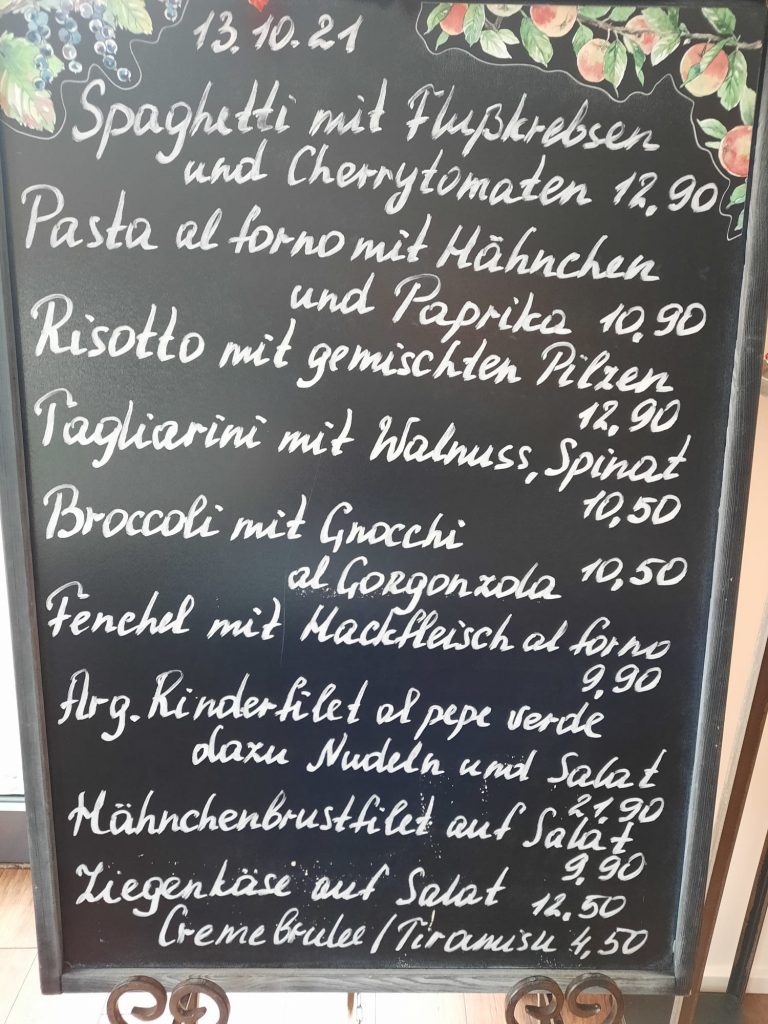 13.10.21
Spaghetti mit Flußkrebsen
und Cherrytomaten 12,90
Pasta al forno mit Hähnchen
und Paprika 10,90
Risotto mit gemischten Pilzen
12,90
Tagliarini mit Walnuss, Spinat
10,50
Broccoli mit Gnocchi
al Gorgonzola 10,50
Fenchel mit Hackfleisch al forno
9,90
Arg. Rinderfilet al pepe verde
dazu Nudeln und Salat
21,90
Hähnchenbrustfilet auf Salat
9,90
Ziegenkäse auf Salat 12,50
Creme brulee / Tiramisu 4,50